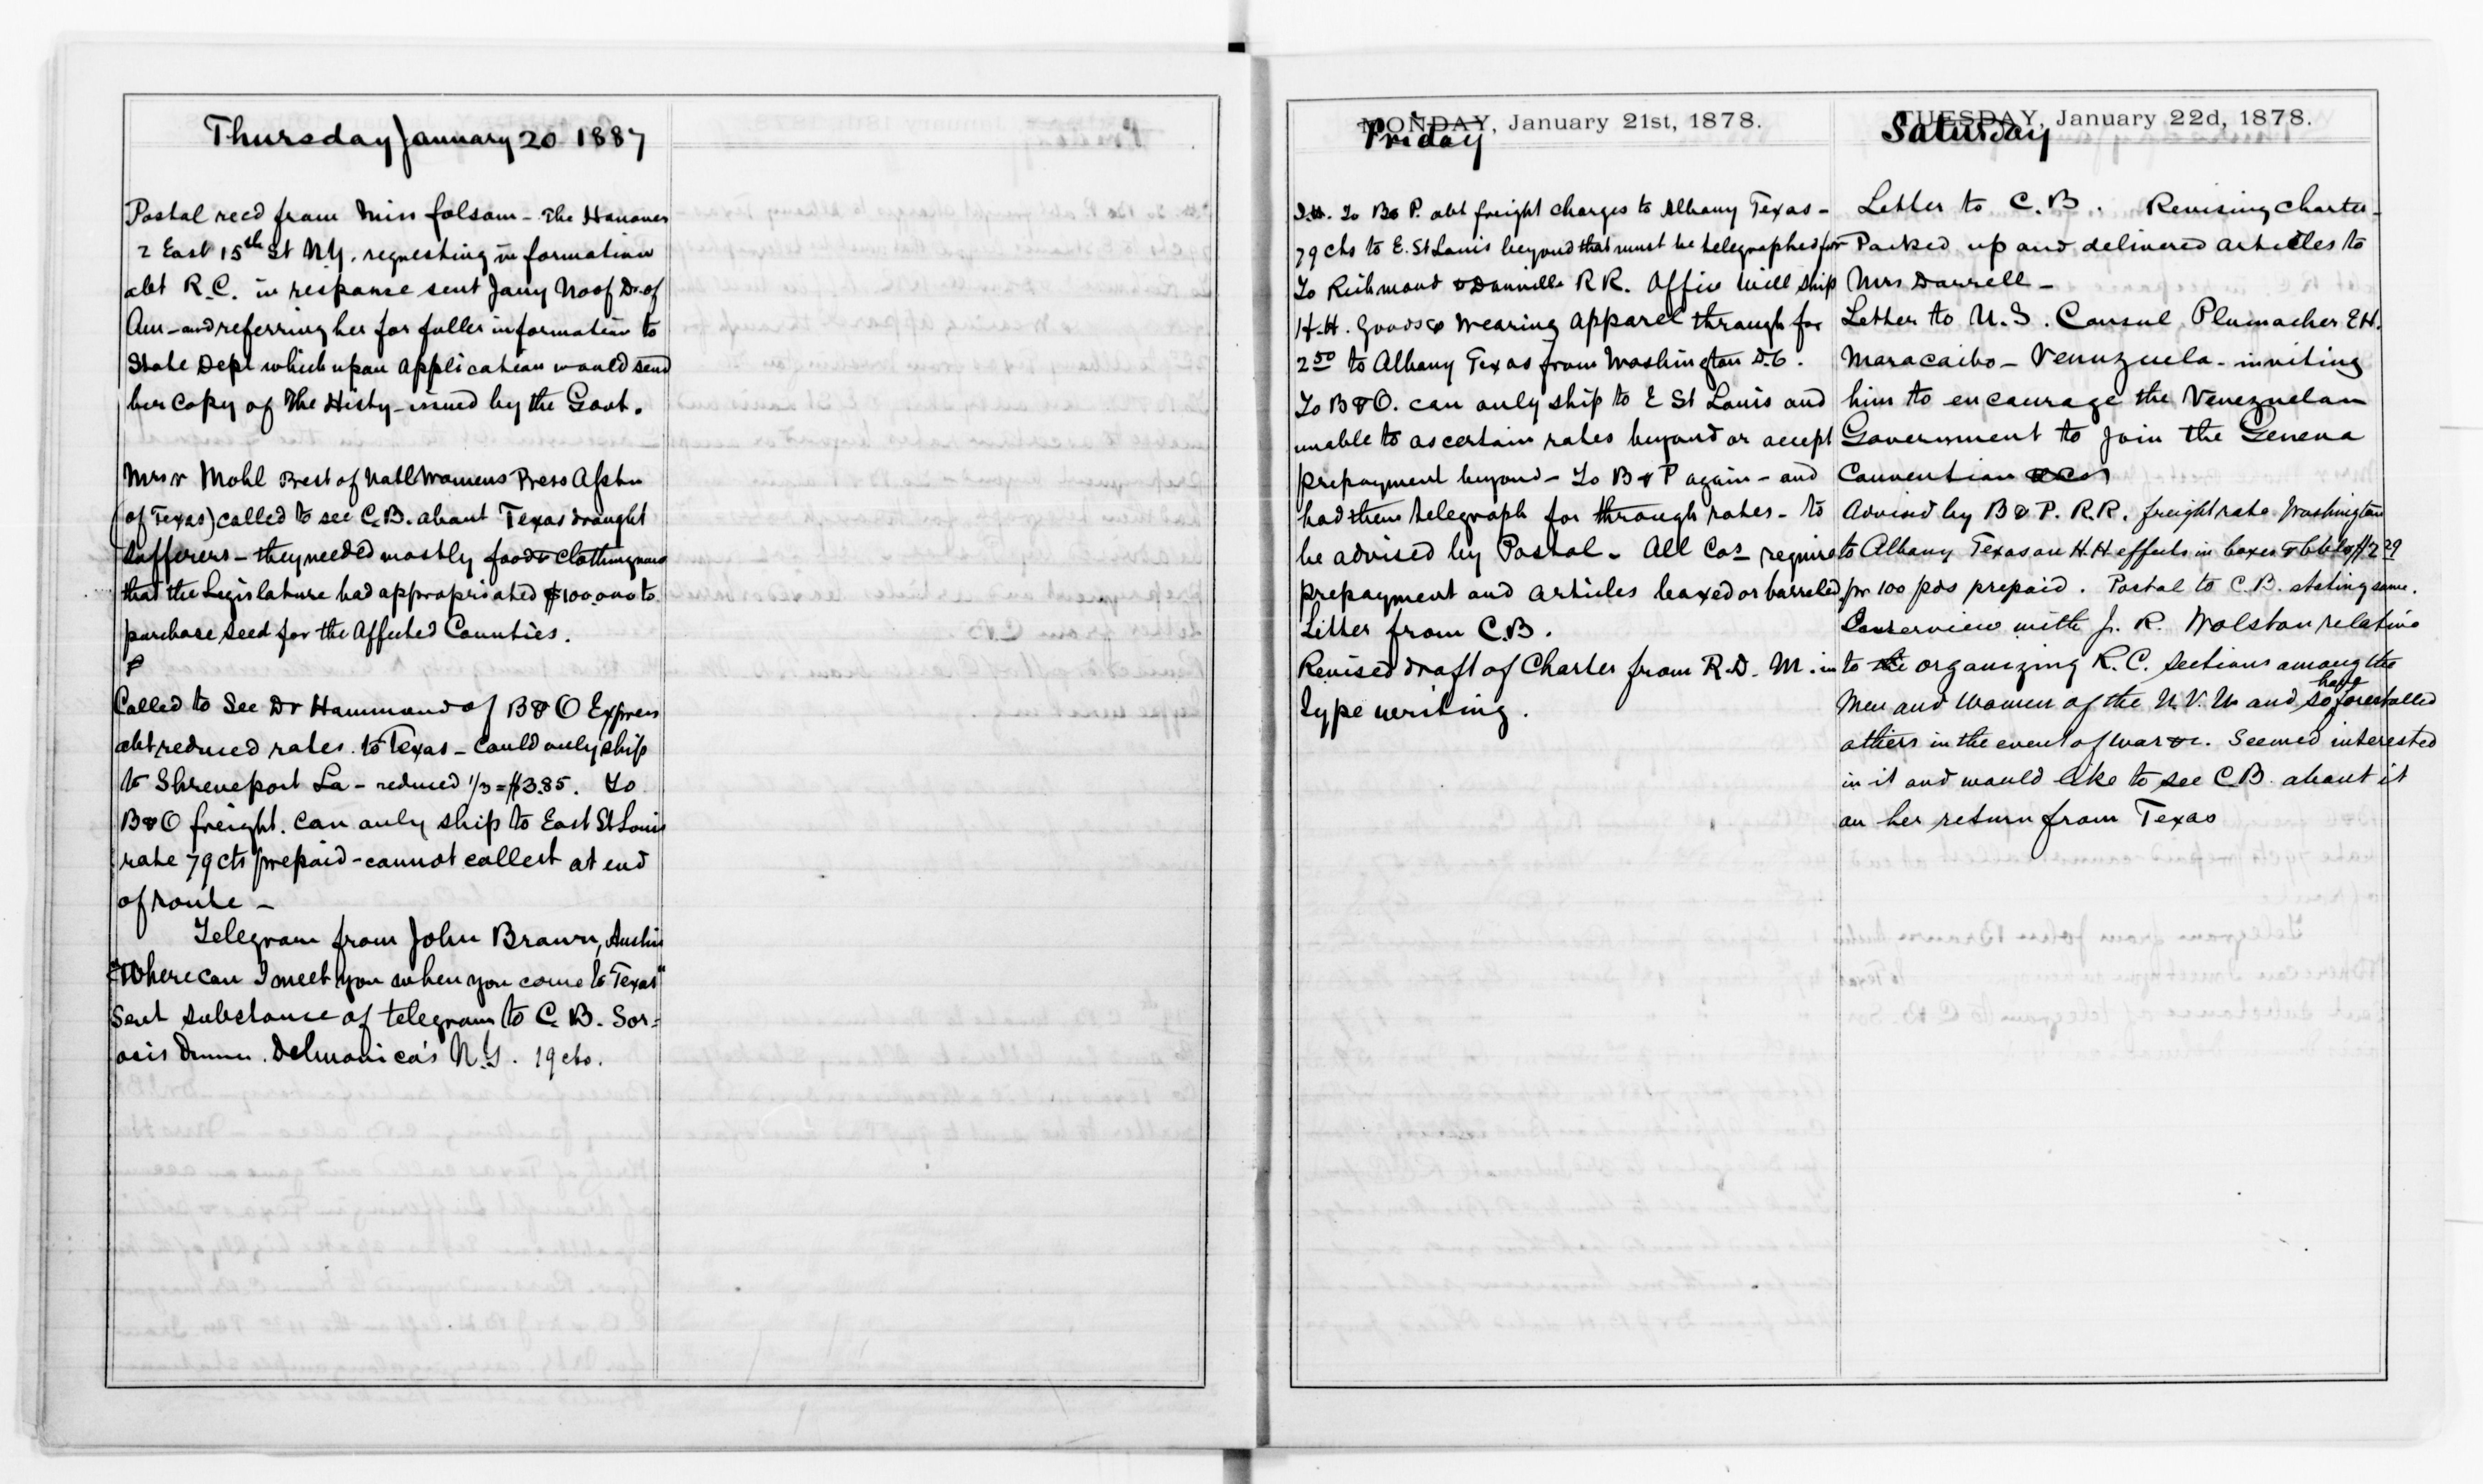 Thursday January 20 1887
Postal recd from Miss Folsom - The Hanover
2 East 15th St N.Y. requesting information
abt R.C. in response sent Jany No of Dr of
Am - and referring her for fuller information to
State Dept which upon application would send
her copy of The Histy - issued by the Govt.
Mrs Mohl Prest of Natl Womens Press Asstn
(of Texas) called to see C.B. about Texas drought
Sufferers - they needed mostly food & clothing
that the Legislature had appropriated $100,000 to
purchase seed for the Affected Counties.
Called to See Dr Hammond of B & O Express
abt reduced rates to Texas - Could only ship
to Shreveport La - reduced 1/3 = $3.85. To
B & O freight. can only ship to East St Louis
rate 79 cts prepaid - cannot collect at end
of route -
Telegram from John Brown, Austin
"Where can I meet you when you come to Texas"
Sent substance of telegram to C. B. Sor=
osis Dinner. Delmonica's N.Y. 19 cts.
MONDAY, January 21st, 1878.
Friday
To B & P. abt freight charges to Albany Texas -
79 cts to E. St Louis beyond that must be telegraphed for
To Richmond & Danville R R. Office will ship
H.H. Goods & Wearing apparel through for
2 50 to Albany Texas from Washington D.C.
To B & O. can only ship to E St Louis and
unable to ascertain rates beyond or accept
prepayment beyond - To B & P again - and
had them telegraph for through rates - to
be advised by Postal - All Cos - require
prepayment and articles boxed or barreled.
Letter from C.B.
Revised draft of Charter from R.D. M. in
type writing.
TUESDAY, January 22d, 1878.
Saturday
Letter to C.B. Revising Charter -
Packed up and delivered articles to
Mrs Darrell -
Letter to U.S. Consul Plumacher E.H.
Maracaibo - Venuzuela - inviting
him to encourage the Venezuelan
Government to join the Geneva
Convention
Advised by B & P. R.R. freight rate Washington
to Albany Texas on H H effects in boxes & bbls $2 29
pr 100 pds prepaid. Postal to C.B. stating same.
Interview with J. R. Wolston relative
to the organizing R.C. sections among the
Men and Women of the U.V.U. and so have forestalled
others in the event of war &c. Seemed interested
in it and would like to see C B. about it
on her return from Texas